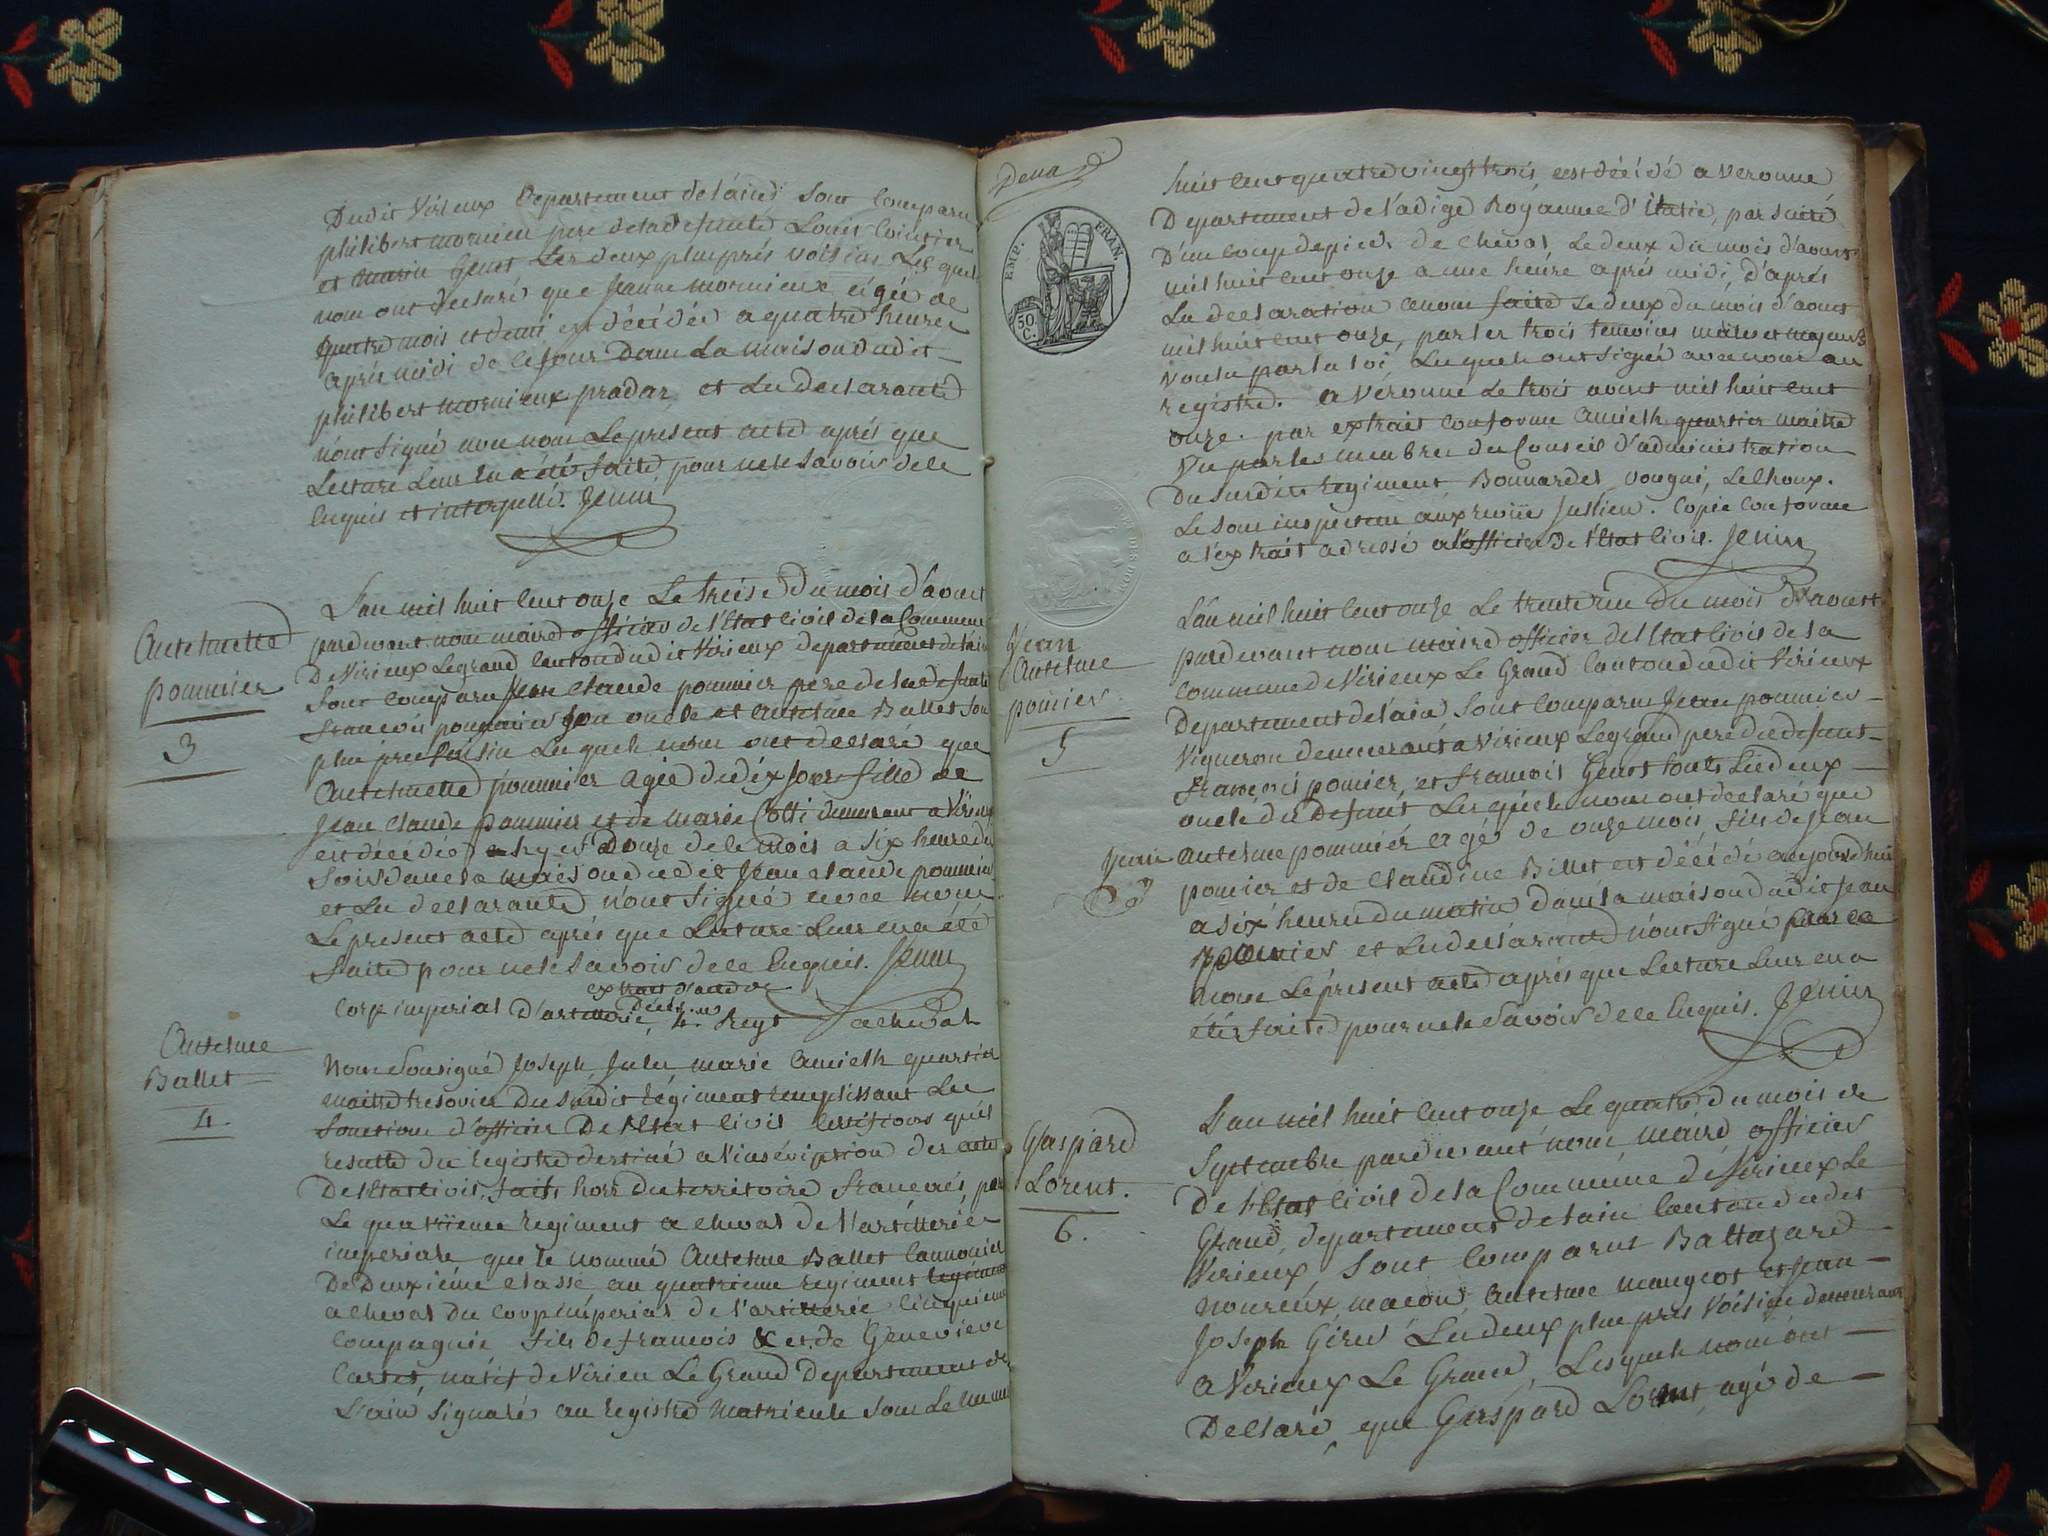 Dudit Virieux Departement de l'aind sont Comparu
philibert mornieu pere de la defunte Louis Cointier
et marie Genet Les deux plus prés voisins Les quels
nous ont declaré que Jeanne mornieux ágée de
quatre mois et demi est décédée a quatre heures
aprés midi de ce jour Dans La maison dudit
philibert mornieux pradar, et Les declarants
n'ont signé avec nous Le present acte aprés que
Lecture Leur en a été faite pour ne le savoir de ce
Enquis et interpellé. Jenin
Antelmette
pommier
3
L'an mil huit Cent onze Le treise Du mois d'aout
pardevant nous maire officier de l'Etat Civil de la Commune
De Virieux Legrand Canton dudit Virieux departement de l'ain
sont Comparu Jean Claude pommier pere de la defunte
francois pommier son oncle et Antelme Ballet son
plus prés voisin Les quels nous ont declaré que
Antelmette pommier agée de dix jours fille de
Jean Claude pommier et de marie Cotti demeurant a Virieux
est décédée hyer Douze de ce mois a six heures du
Soir dans la maison dudit Jean Claude pommier
et Les declarants n'ont signé avec nous
Le present acte aprés que Lecture Leur en a été
faite pour ne le savoir de ce Enquis. Jenin
extrait d'acte de
Décés
Corps imperial D'artillerie, 4.e Regt a cheval
Antelme
Ballet
4.
Nous Soussigné Joseph, Jules, marie Amielh quartier
maitre tresorier Du susdit régiment remplissant Les
fonctions d'officier De l'Etat Civil Certifions qu'il
resulte du registre destiné a l'inscription des actes
De l'Etat Civil, faits hors du territoire francois, par
Le quatrieme regiment a cheval de l'artillerie
imperiale que le nommé Antelme Ballet Canonier
De Deuxiéme classe au quatrieme regiment
a cheval du Corps impérial de l'artillerie Cinquieme
Compagnie fils de francois & et de Genevieve
Cartet, natif de Virieu Le Grand Departement de
L'ain signaré au registre matricule sous Le numero
EMP. FRAN.
50 C.
huit Cent quatre vingt trois est décédé a Veronne
Departement de l'adige Royaume d'Italie, par suite
D'un coup de pied de cheval, Le deux du mois d'aoust
mil huit cent onze a une heure aprés midi, D'aprés
La declaration a nous faite Le deux du mois d'aout
mil huit cent onze, par les trois temoins mâles et majeurs
voulu par la loi, Lesquels ont signé avec nous au
registre. a Veronne Le trois aout mil huit cent
onze. par extrait Conforme Amielh quartier maitre
Vu par les membres du Conseil d'administration
Du susdits regiment Bonnardel, vougui, Lelhoux.
Le sous inspecteur aux revües Jullien. Copie Conforme
a l'extrait adressé a l'officier de l'Etat Civil. Jenin
Jean
Antelme
pomier
5
L'an mil huit Cent onze Le trente un Du mois D'aoust
pardevant nous maire officier de l'Etat Civil de la
Commune de Virieux Le Grand Canton dudit Virieux
Departement de l'ain, sont Comparu Jean pommier
Vigneron demeurant a Virieux Legrand pere du defunt
francois pomier, et francois Genet touts Les deux
oncle du Defunt Les quels nous ont declaré que
Jean antelme pommier ágé de onze mois, fils de Jean
pomier et de Claudine Billet est décédé aujourd'hui
a six heures du matin dans la maison dudit Jean
pomier et Les declarants n'ont signé
nous Le present acte aprés que Lecture Leur en a
été faite pour ne le Savoir de ce Enquis. Jenin
Gaspard
Lorent.
6.
L'an mil huit Cent onze Le quatre du mois de
Septembre pardevant nous, Maire officier
De l'Etat Civil de la Commune de Virieux Le
Grand, departement de lain Canton dudit
Virieux, sont Comparut Baltazard
noureux, macon, Antelme mangeot et Jean
Joseph Girel Les deux plus prés Voisins demeurant
a Virieux Le Grand, Lesquels nous ont
Declaré, que Gaspard Lorent, agé de